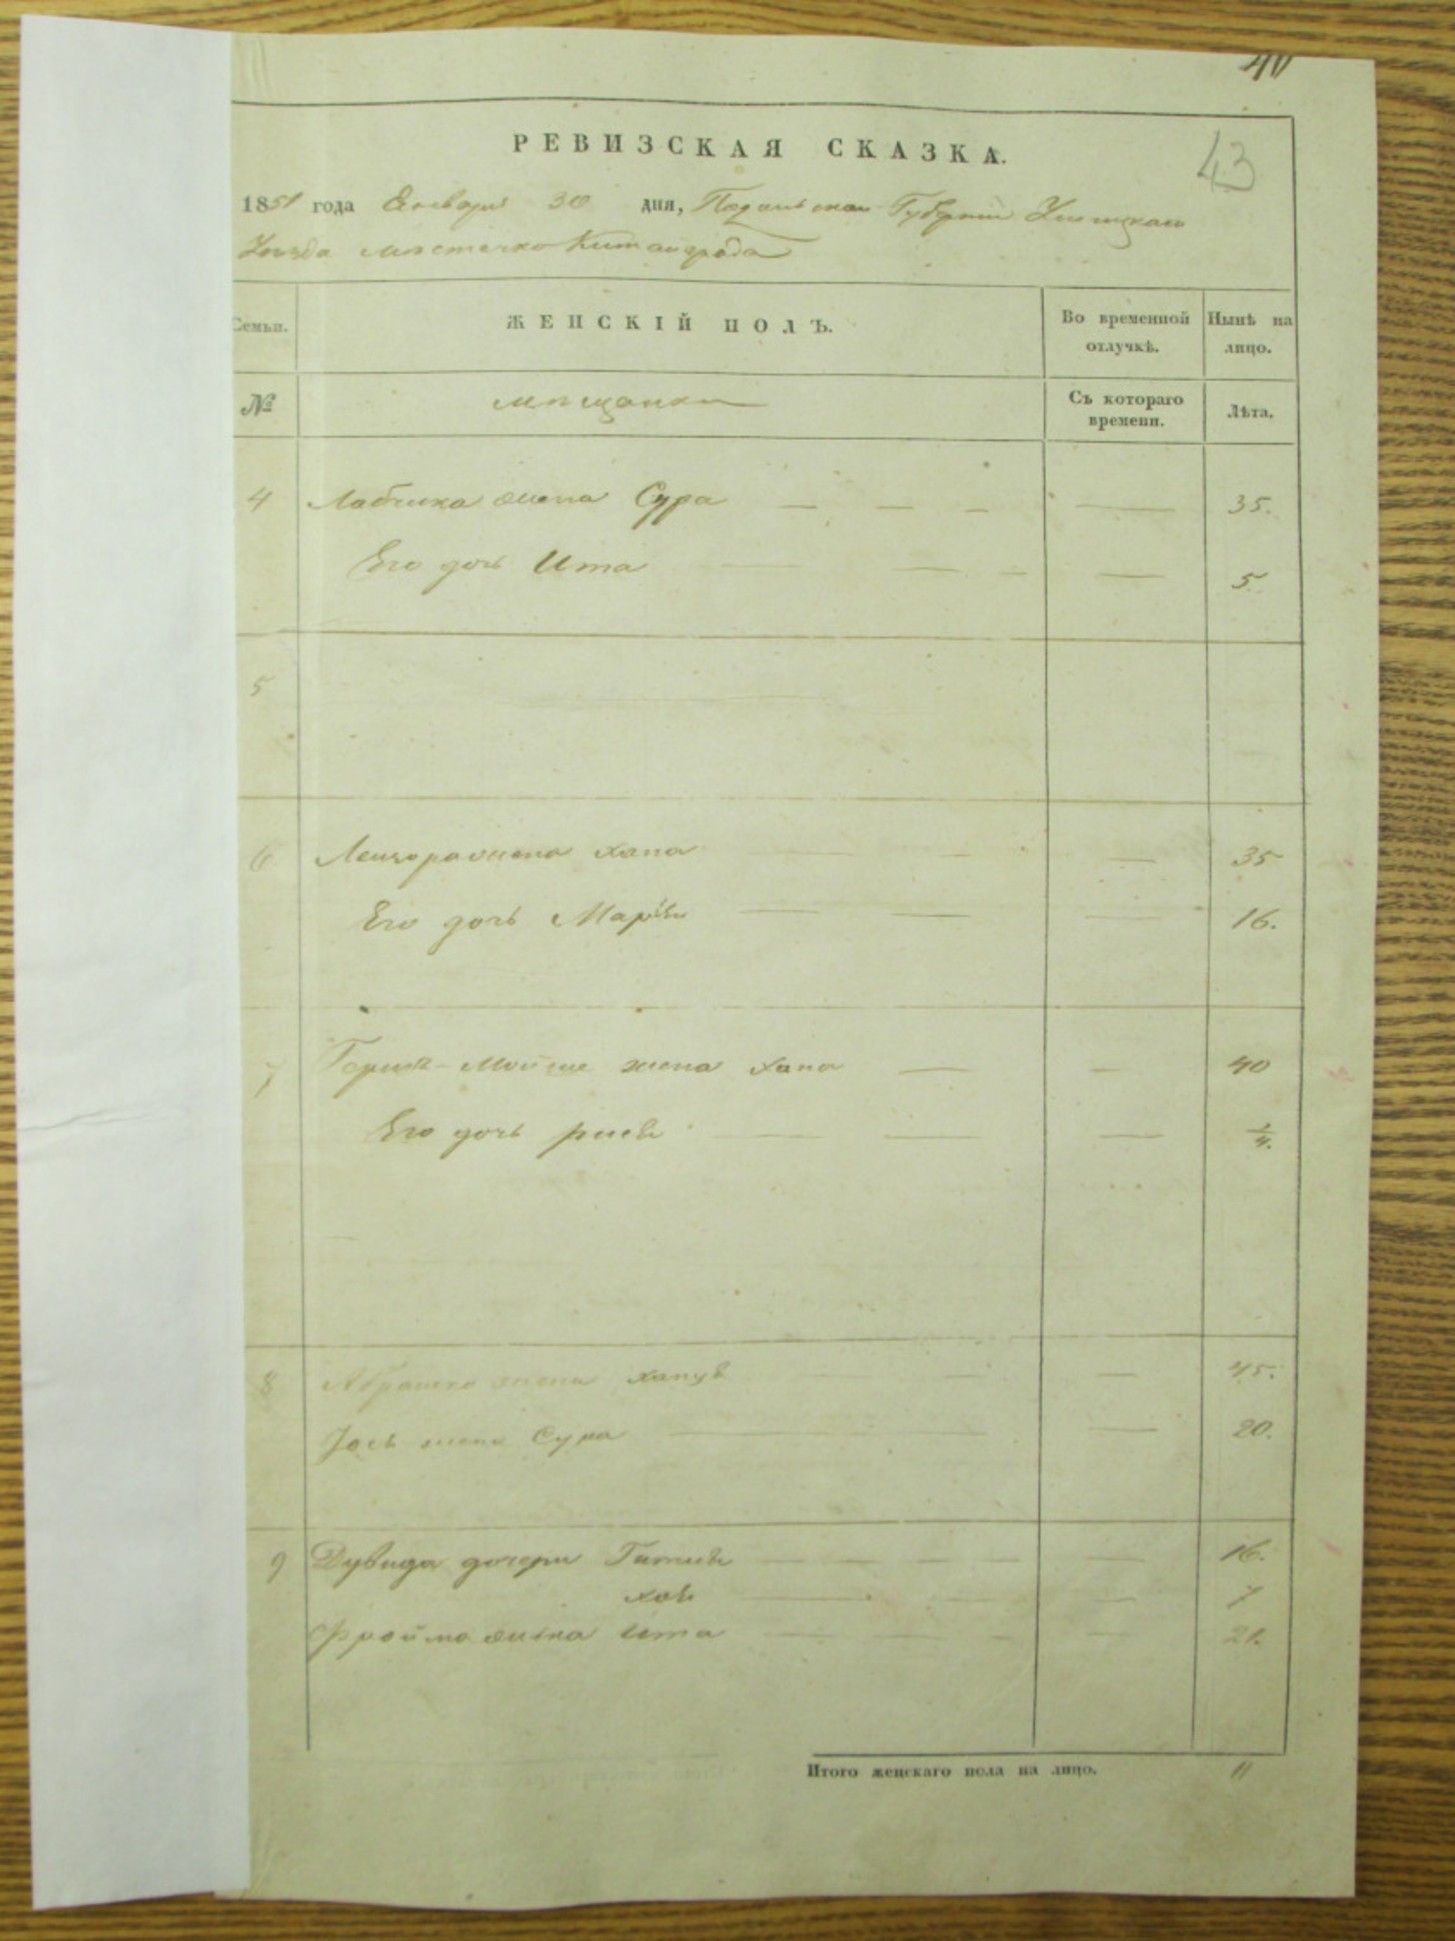 40
43
РЕВИЗСКАЯ СКАЗКА.
1851 года Енваря 30 дня, Подольской Губернии Ушицкаго
Уезда местечка Китайгрода
Семьи.
ЖЕНСКІЙ ПОЛЪ.
Во временной отлучкѣ.
Нынѣ на лицо.
№
мещанки
Съ котораго времени.
Лѣта.
4 жена Сура — — — — 35.
Его дочь Ита — — — — 5.
5
6 жена хана — — — 35
Его дочь — — — 16.
7 Гершк-Мойше жена хана — — 40
Его дочь — — — 1/4.
8 Абрамка жена — — — 45.
Iось жена Сура — — 20.
9 Дувида дочери — — — — 16.
— — — 7
Фройма жена Ита — — — — 21.
Итого женскаго пола на лицо. 11